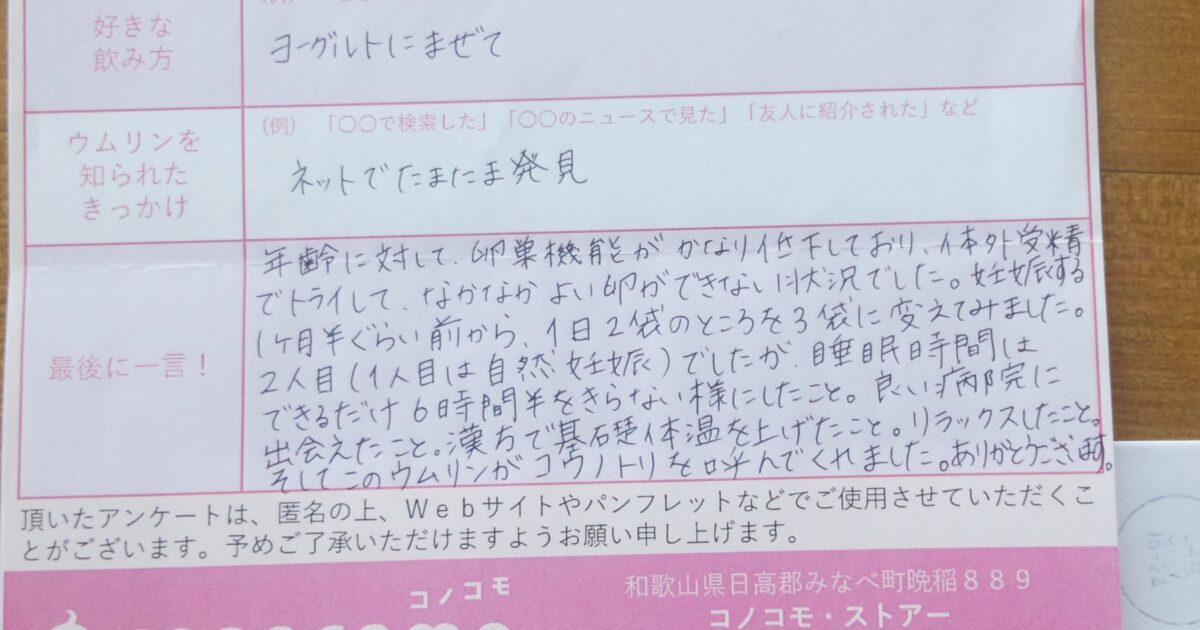 好きな
飲み方
ヨーグルトにまぜて
ウムリンを
知られた
きっかけ
(例) 「〇〇で検索した」「〇〇のニュースで見た」「友人に紹介された」など
ネットでたまたま発見
最後に一言!
年齢に対して、卵巣機能がかなり低下しており、体外受精
でトライして、なかなかよい卵ができない状況でした。妊娠する
1ヶ月半ぐらい前から、1日2袋のところを3袋に変えてみました。
2人目(1人目は自然妊娠)でしたが、睡眠時間は
できるだけ6時間半をきらない様にしたこと。良い病院に
出会えたこと。漢方で基礎体温を上げたこと。リラックスしたこと。
そしてこのウムリンがコウノトリを呼んでくれました。ありがとうございます。
頂いたアンケートは、匿名の上、Webサイトやパンフレットなどでご使用させていただくこ
とがございます。予めご了承いただけますようお願い申し上げます。
コノコモ
和歌山県日高郡みなべ町晩稲889
コノコモ・ストアー